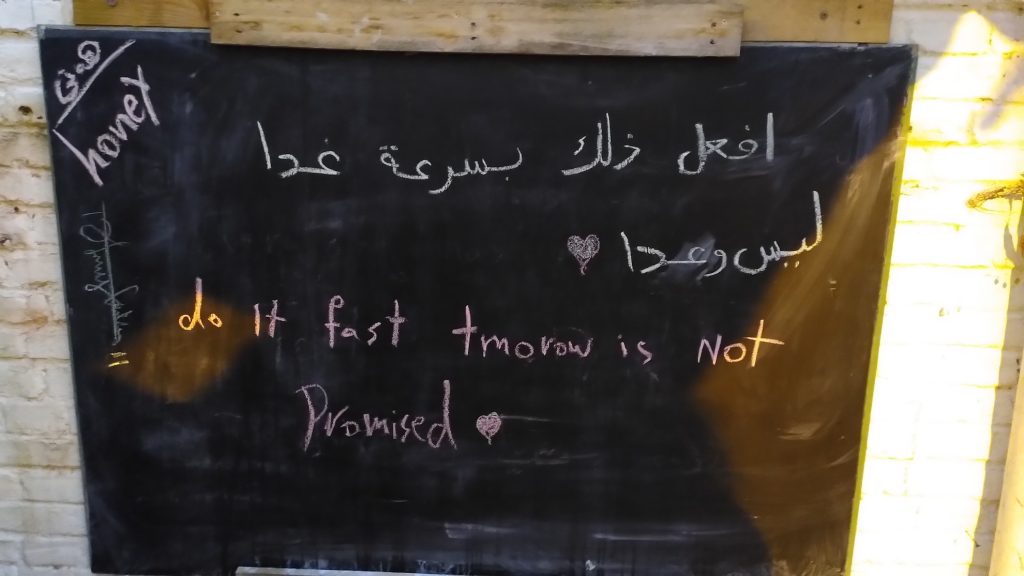 honey
افعل ذلك بسرعة غدا
ليس وعدا
do It fast tmorow is Not
Promised